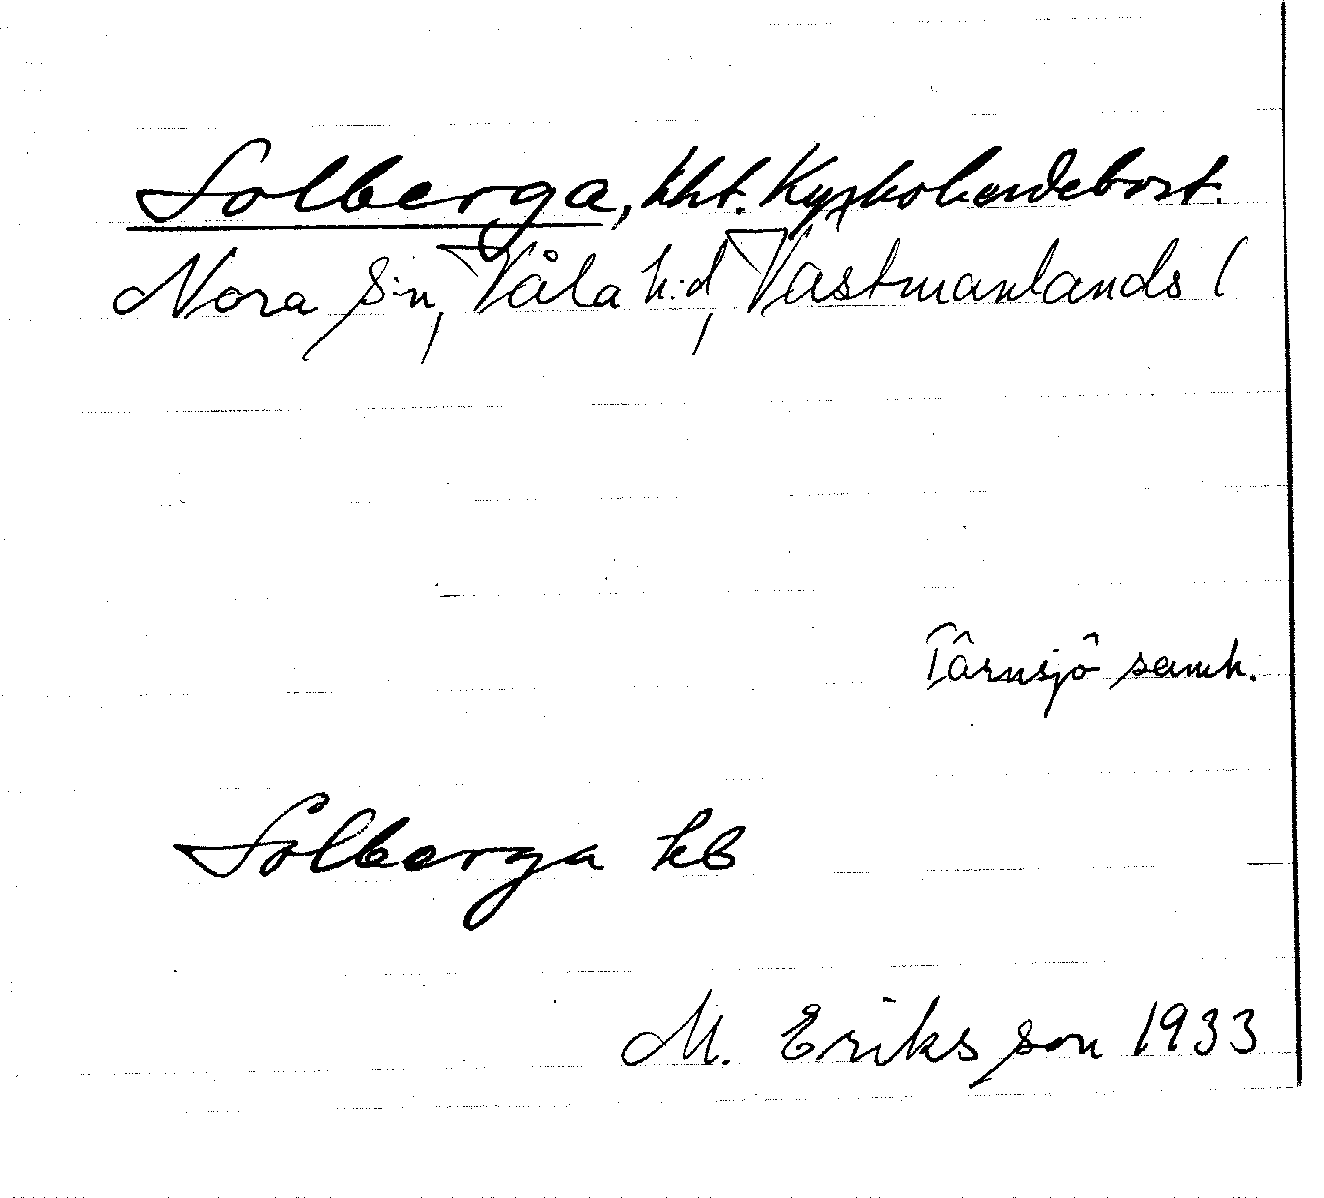 Solberga, kht. Kyrkoherdebost.
Nora s:n, Våla h:d, Västmanlands l
Tärnsjö samh.
Solberga kb
M. Eriksson 1933